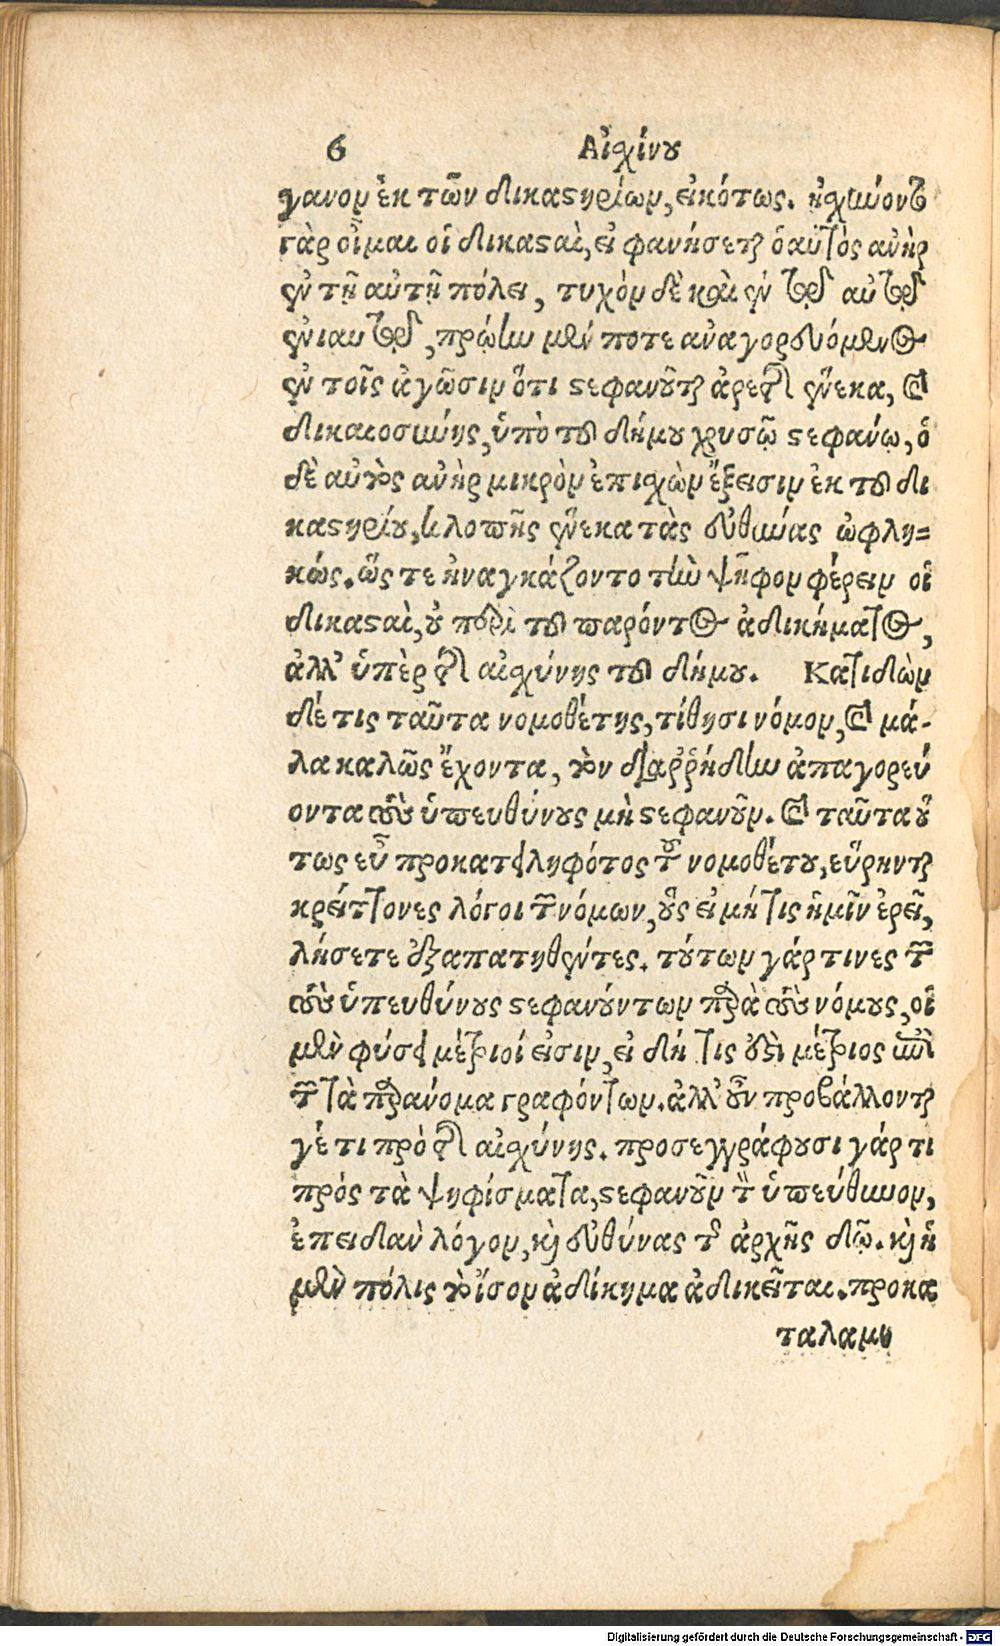 6 Αἰσχίνου
γανον ἐκ τῶν δικαστηρίων, εἰκότως. ᾐσχύνοντο
γὰρ οἶμαι οἱ δικασταὶ, εἰ φανήσεται ὁ αὐτὸς ἀνὴρ
ἐν τῇ αὐτῇ πόλει, τυχὸν δὲ καὶ ἐν τῷ αὐτῷ
ἐνιαυτῷ, πρώην μέν ποτε ἀναγορευόμενος
ἐν τοῖς ἀγῶσιν ὅτι στεφανοῦται ἀρετῆς ἕνεκα, καὶ
δικαιοσύνης, ὑπὸ τοῦ δήμου χρυσῷ στεφάνῳ, ὁ
δὲ αὐτὸς ἀνὴρ μικρὸν ἐπισχὼν ἔξεισιν ἐκ τοῦ δι
καστηρίου, κλοπῆς ἕνεκα τὰς εὐθύνας ὠφλη=
κώς. ὥς τε ἠναγκάζοντο τὴν ψῆφον φέρειν οἱ
δικασταὶ, οὐ περὶ τοῦ παρόντος ἀδικήματος,
ἀλλ' ὑπὲρ τῆς αἰσχύνης τοῦ δήμου. Κατιδὼν
δέ τις ταῦτα νομοθέτης, τίθησι νόμον, καὶ μά-
λα καλῶς ἔχοντα, τὸν διαῤῥήδην ἀπαγορεύ
οντα τοὺς ὑπευθύνους μὴ στεφανοῦν. καὶ ταῦτα οὕ
τως εὖ προκατειληφότος τοῦ νομοθέτου, εὕρηνται
κρείττονες λόγοι τῶν νόμων, οὓς εἰ μή τις ἡμῖν ἐρεῖ,
λήσετε ἐξαπατηθέντες. τούτων γάρ τινες τῶν
τοὺς ὑπευθύνους στεφανούντων παρὰ τοὺς νόμους, οἱ
μὲν φύσει μέτριοί εἰσιν, εἰ δή τις ἐστὶ μέτριος τῶν
τὰ παράνομα γραφόντων. ἀλλ' οὖν προβάλλονταί
γέ τι πρὸ τῆς αἰσχύνης. προσεγγράφουσι γάρ τι
πρὸς τὰ ψηφίσματα, στεφανοῦν τὸν ὑπεύθυνον,
ἐπειδὰν λόγον, καὶ εὐθύνας τῆς ἀρχῆς δῷ. καὶ ἡ
μὲν πόλις τὸ ἴσον ἀδίκημα ἀδικεῖται. προκα
ταλαμ
Digitalisierung gefördert durch die Deutsche Forschungsgemeinschaft - DFG